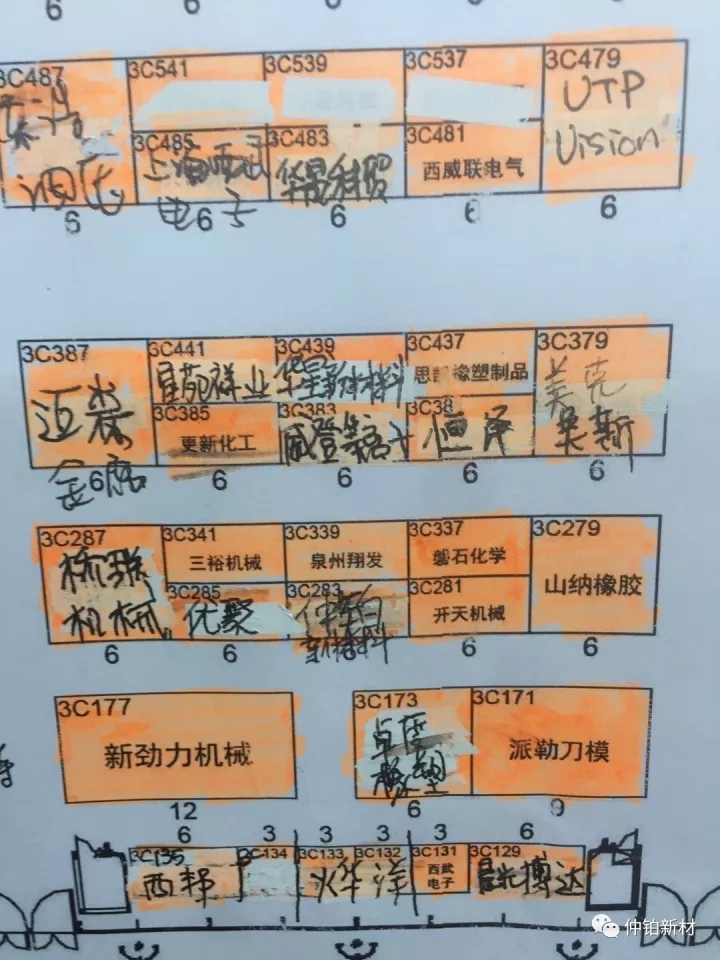 6 6 6 6
3C487 3C541 3C539 3C537 3C479
UTP
Vision
3C485 3C483 3C481
上海西屋 华晟科贸 西威联电气
电子
6 6 6 6 6
3C387 3C441 3C439 3C437 3C379
星苑祥业 华星新材料 橡塑制品 美克
3C385 3C383 3C38
更新化工 威登 恒泽 昊斯
6 6 6 6 6
3C287 3C341 3C339 3C337 3C279
三裕机械 泉州翔发 磐石化学 山纳橡胶
3C285 3C283 3C281
机械 优聚 仲铂 开天机械
新材料
6 6 6 6 6
3C177 3C173 3C171
新劲力机械 橡塑 派勒刀模
12 6 9
6 3 3 3 3 6
3C135 3C134 3C133 3C132 3C131 3C129
西邦 华洋 西武 博达
电子
仲铂新材